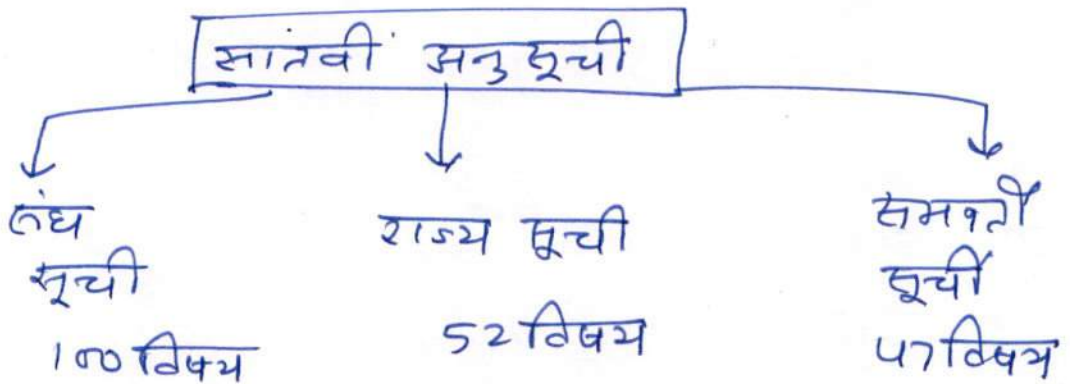 सांतवीं अनुसूची
संघ
सूची
100 विषय
राज्य सूची
52 विषय
समवर्ती
सूची
47 विषय